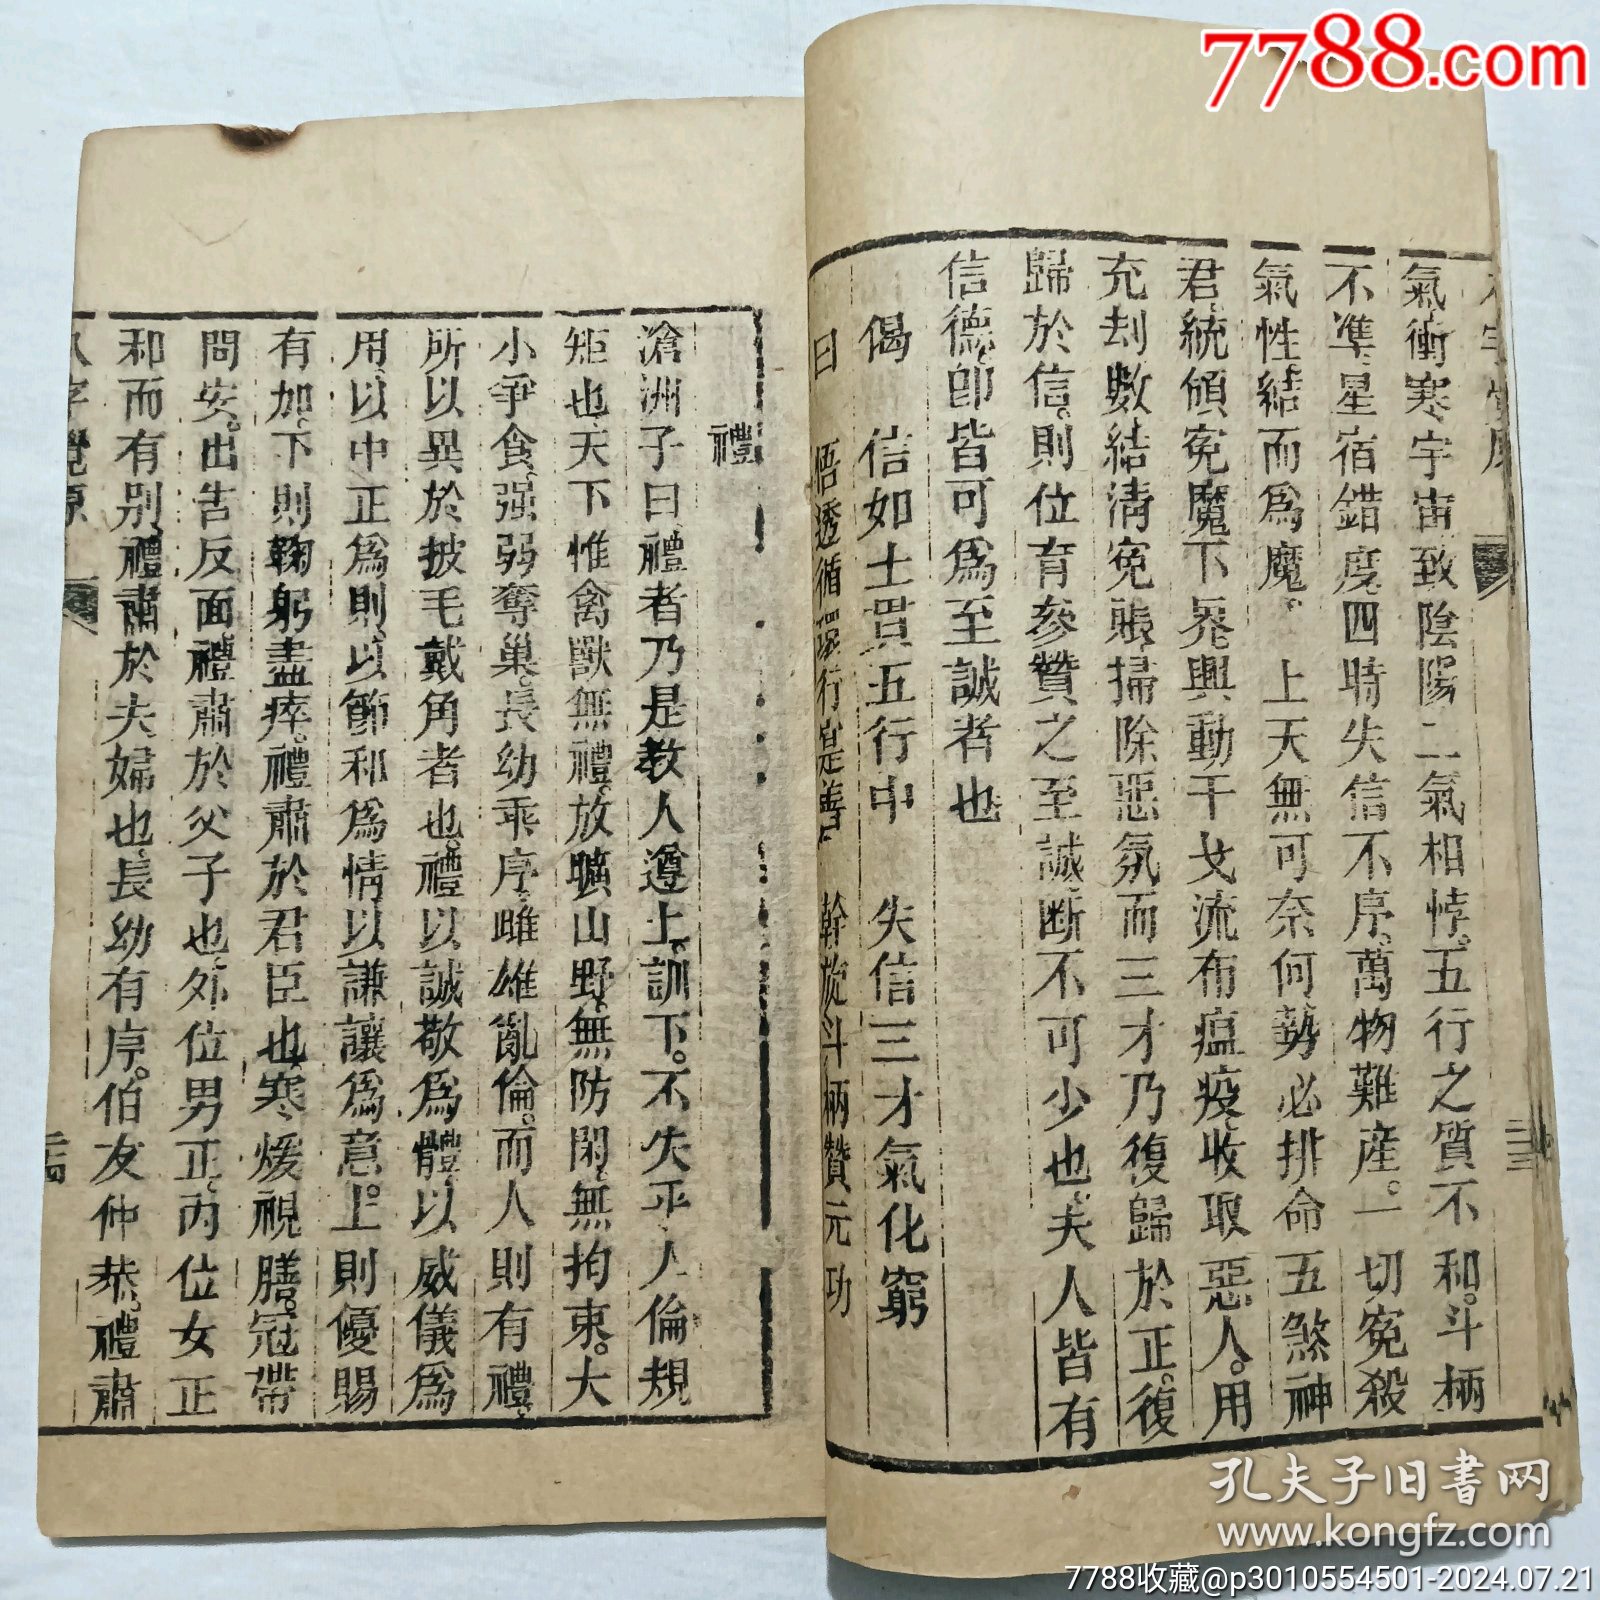 7788.com
氣衝寒宇宙致陰陽二氣相悖五行之質不和斗柄
不準星宿錯度四時失信不序萬物難產一切寃殺
氣性結而爲魔 上天無可奈何勢必排命五煞神
君統領寃魔下界興動干戈流布瘟疫收取惡人用
充刦數結清寃賬掃除惡氛而三才乃復歸於正復
歸於信則位育參贊之至誠断不可少也夫人皆有
信德卽皆可爲至誠者也
偈 信如土貫五行中 失信三才氣化窮
曰 悟透循環行是善 幹旋斗柄贊元功
二十三
禮
滄洲子曰禮者乃是教人遵上訓下不失乎人倫規
矩也天下惟禽獸無禮放曠山野無防閑無拘束大
小爭食强弱奪巢長幼乖序雌雄亂倫而人則有禮
所以異於披毛戴角者也禮以誠敬爲體以威儀爲
用以中正爲則以節和爲情以謙讓爲意上則優賜
有加下則鞠躬盡瘁禮肅於君臣也寒煖視膳冠帶
問安出告反面禮肅於父子也外位男正內位女正
和而有别禮肅於夫婦也長幼有序伯友仲恭禮肅
八字覺原
二十四
孔夫子旧书网
www.kongfz.com
7788收藏@p3010554501-2024.07.21